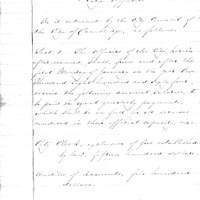 Be it ordained by the City Council of
the City of Cambridge, as follows:
Sect. 1. The Officers of the City, herein
after named, shall, from and after the
first Monday of January, in the year One
thousand eight hundred and sixty four,
receive the following annual salaries, to
be paid in equal quarterly payments,
which shall be in full for all services
rendered in their official capacity, viz:
City Clerk, exclusive of fees established
by law, fifteen hundred dollars.
Auditor of Accounts, five hundred
dollars.